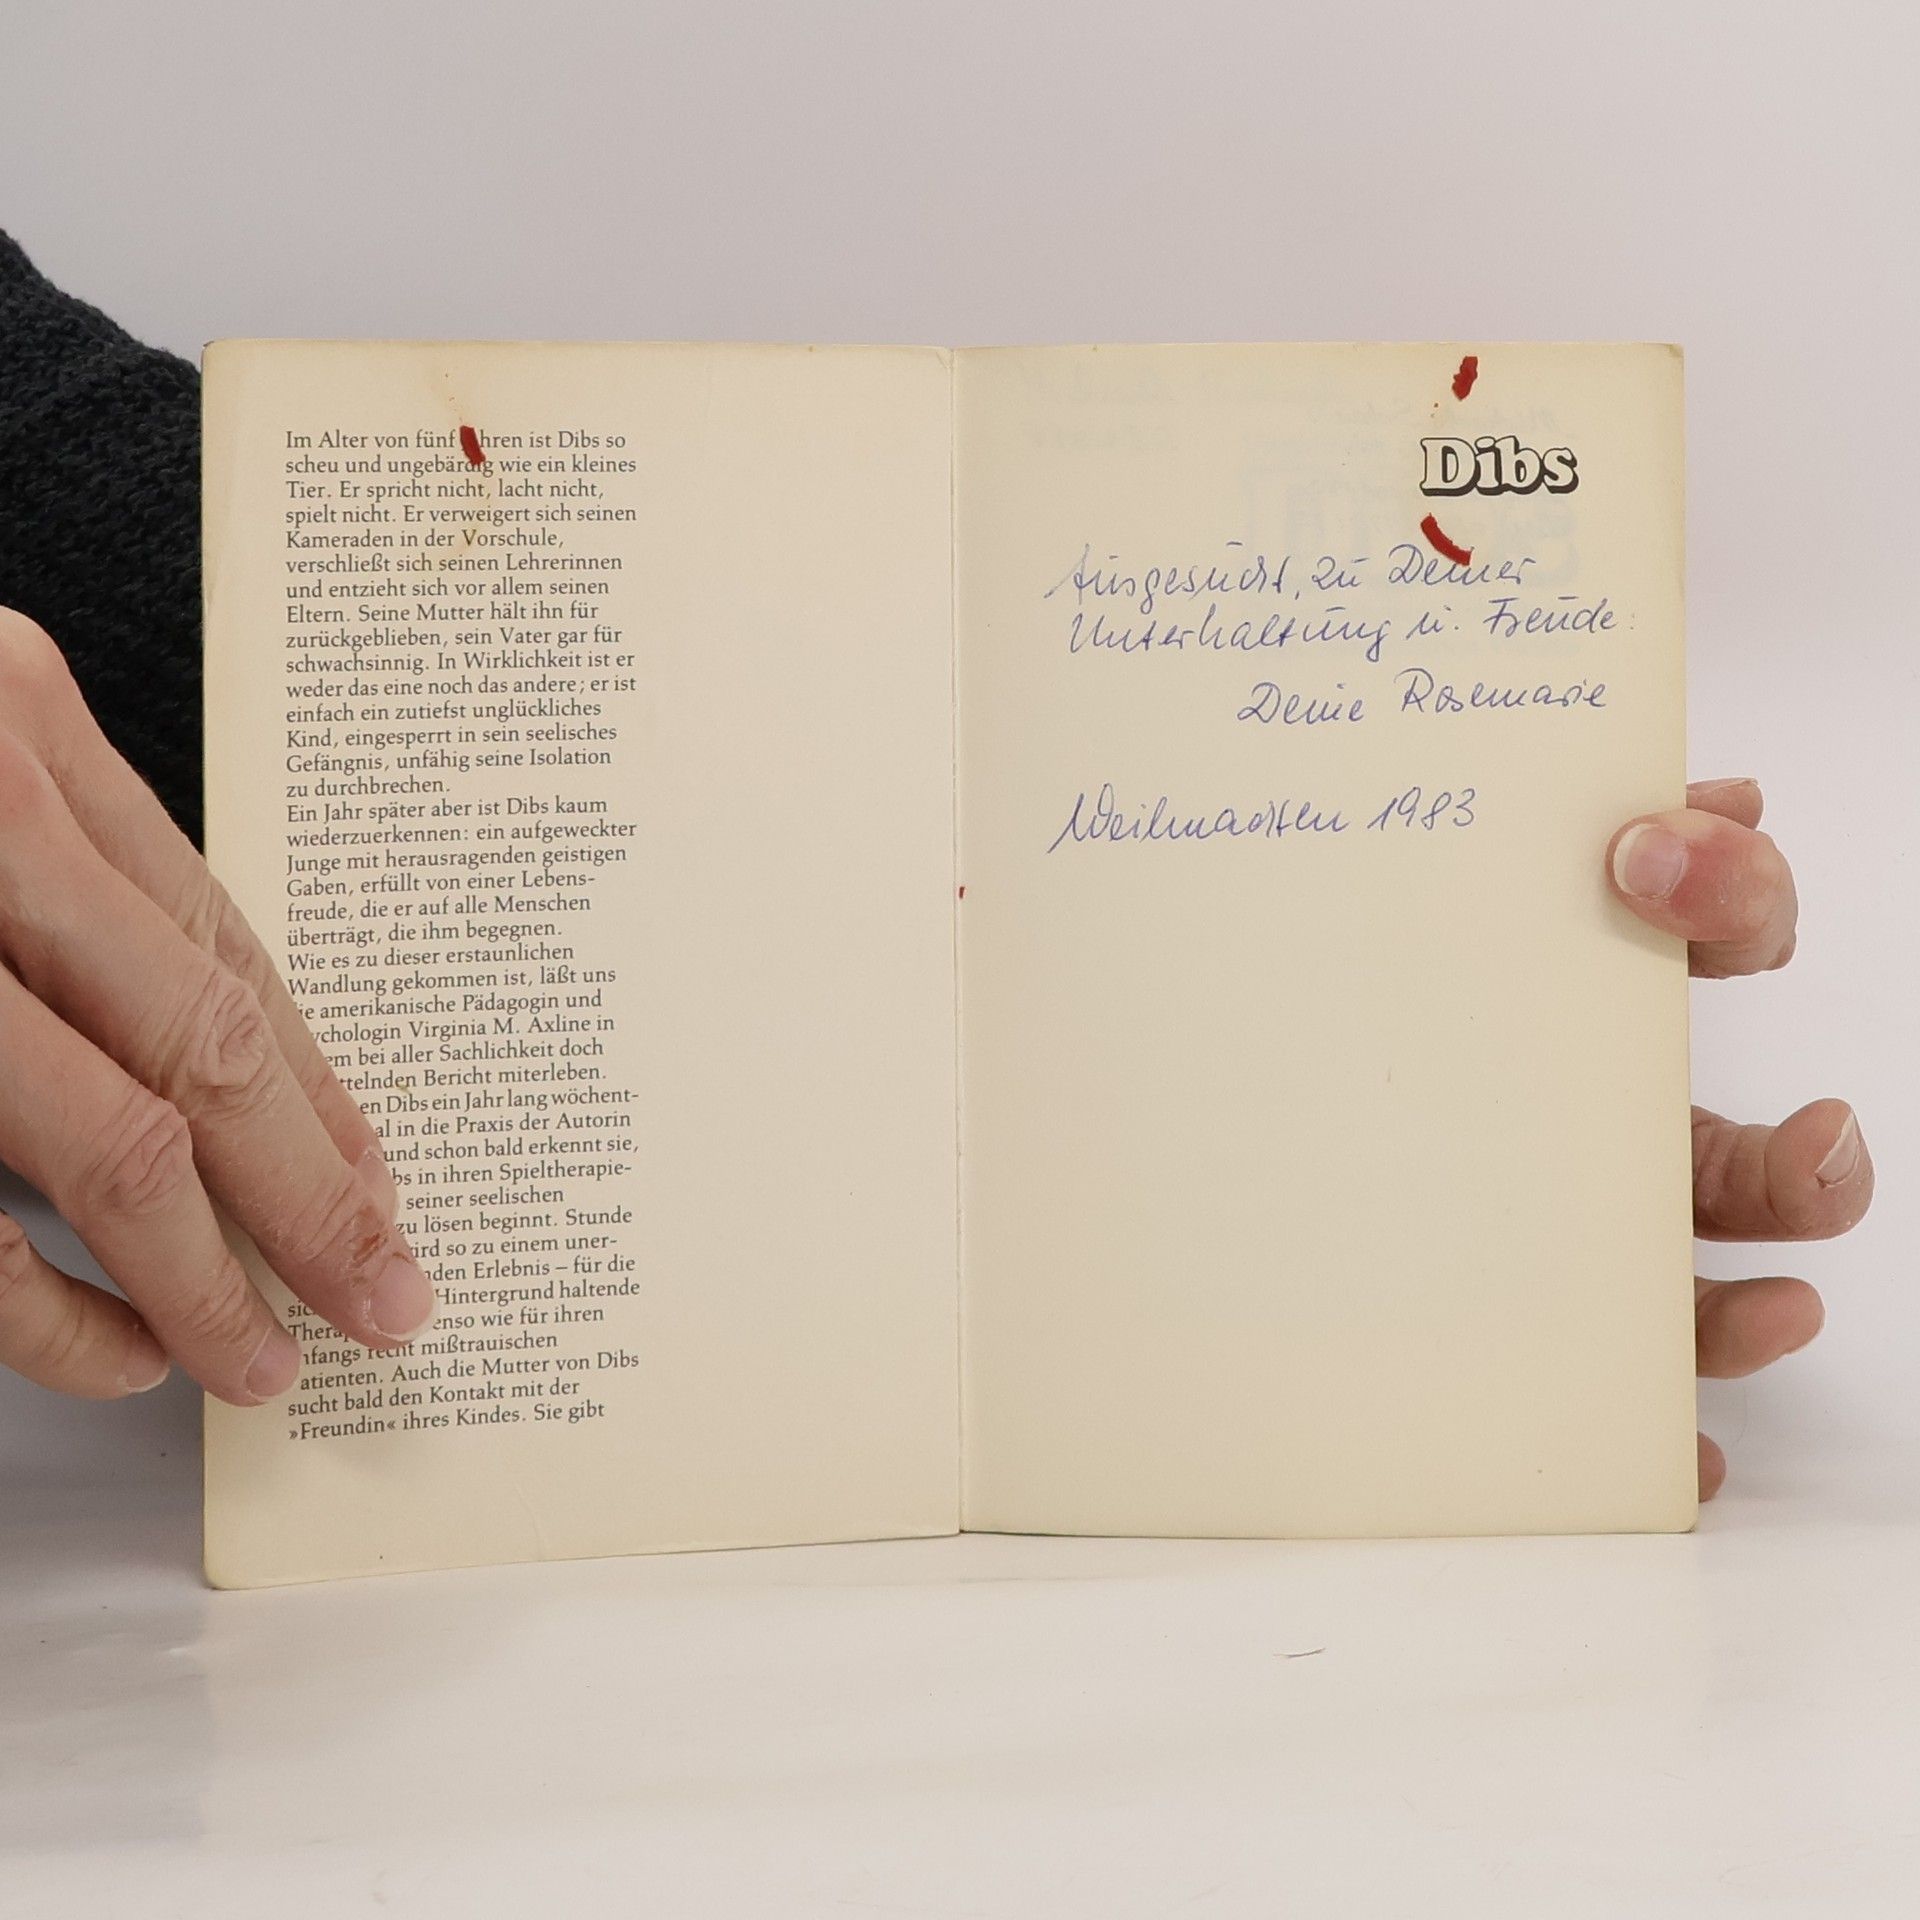 Im Alter von fünf hren ist Dibs so
scheu und ungebärdig wie ein kleines
Tier. Er spricht nicht, lacht nicht,
spielt nicht. Er verweigert sich seinen
Kameraden in der Vorschule,
verschließt sich seinen Lehrerinnen
und entzieht sich vor allem seinen
Eltern. Seine Mutter hält ihn für
zurückgeblieben, sein Vater gar für
schwachsinnig. In Wirklichkeit ist er
weder das eine noch das andere; er ist
einfach ein zutiefst unglückliches
Kind, eingesperrt in sein seelisches
Gefängnis, unfähig seine Isolation
zu durchbrechen.
Ein Jahr später aber ist Dibs kaum
wiederzuerkennen: ein aufgeweckter
Junge mit herausragenden geistigen
Gaben, erfüllt von einer Lebens-
freude, die er auf alle Menschen
überträgt, die ihm begegnen.
Wie es zu dieser erstaunlichen
Wandlung gekommen ist, läßt uns
ie amerikanische Pädagogin und
ychologin Virginia M. Axline in
em bei aller Sachlichkeit doch
ttelnden Bericht miterleben.
en Dibs ein Jahr lang wöchent-
al in die Praxis der Autorin
und schon bald erkennt sie,
bs in ihren Spieltherapie-
seiner seelischen
zu lösen beginnt. Stunde
ird so zu einem uner-
nden Erlebnis – für die
sic Hintergrund haltende
Therap enso wie für ihren
nfangs recht mißtrauischen
atienten. Auch die Mutter von Dibs
sucht bald den Kontakt mit der
»Freundin« ihres Kindes. Sie gibt
Dibs
Ausgesucht, zu Deiner
Unterhaltung u. Freude:
Deine Rosemarie
Weihnachten 1983